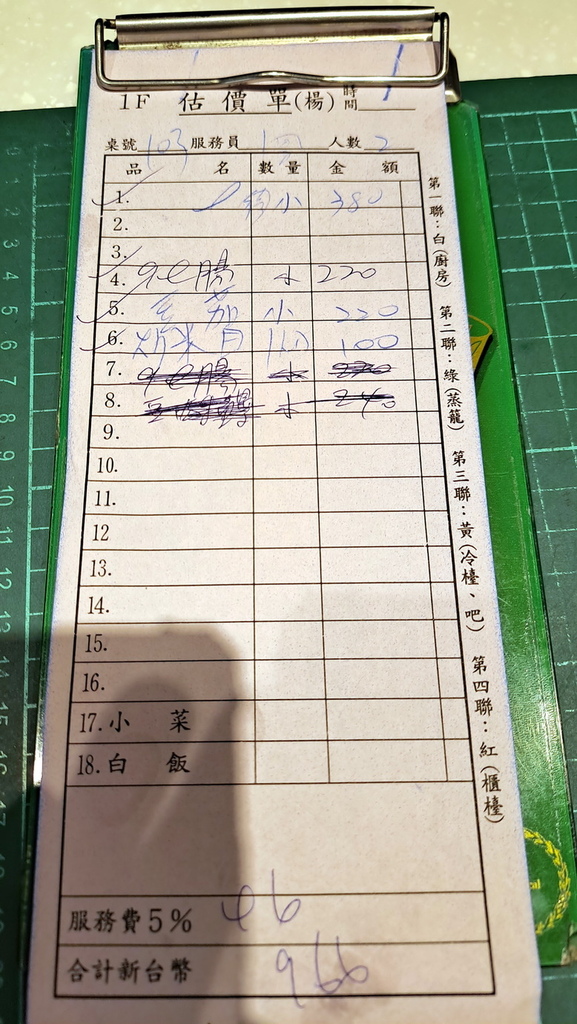 1F 估價單(楊) 時間
桌號 103 服務員 人數 2
品名 數量 金額
1. 小 380
2.
3.
4. 9七腸 小 220
5. 茄 小 220
6. 炒米月 100
7. 9七腸 小 220
8. 小 240
9.
10.
11.
12
13.
14.
15.
16.
17. 小菜
18. 白飯
服務費5% 46
合計新台幣 966
第一聯:白(廚房) 第二聯:綠(蒸籠) 第三聯:黃(冷檯、吧) 第四聯:紅(櫃檯)